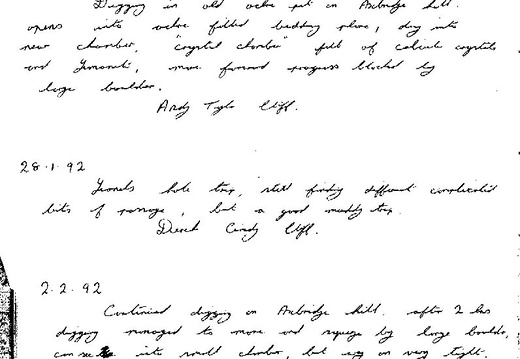 Digging in old ochre pit on Axbridge hill.
opens into ochre filled bedding plane, dug into
new chamber, "crystal chamber" full of calcite crystals
and limonite, more forward progress blocked by
large boulder.
Andy Tyla Cliff.
28.1.92
hole trip, still finding different complicated
bits of passage, but a good muddy trip.
Derek Candy Cliff.
2.2.92
Continued digging on Axbridge hill. after 2 hrs
digging managed to move and squeeze by large boulder,
can see into small chamber, but very tight.